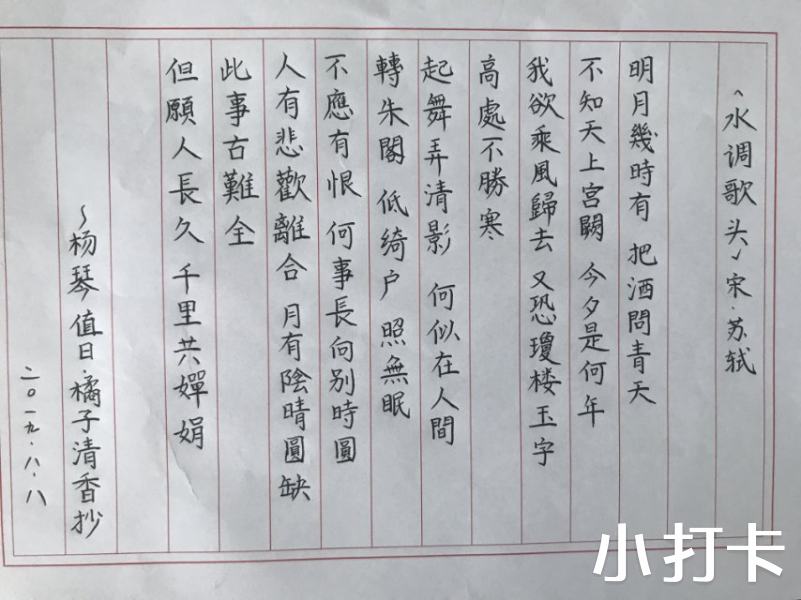 《水调歌头》宋·苏轼
明月幾時有 把酒問青天
不知天上宫闕 今夕是何年
我欲乘風歸去 又恐瓊楼玉字
高處不勝寒
起舞弄清影 何似在人間
轉朱閣 低绮户 照無眠
不應有恨 何事長向别時圓
人有悲歡離合 月有陰晴圓缺
此事古難全
但願人長久 千里共嬋娟
~杨琴值日·橘子清香抄
二〇一九·八·八
小打卡